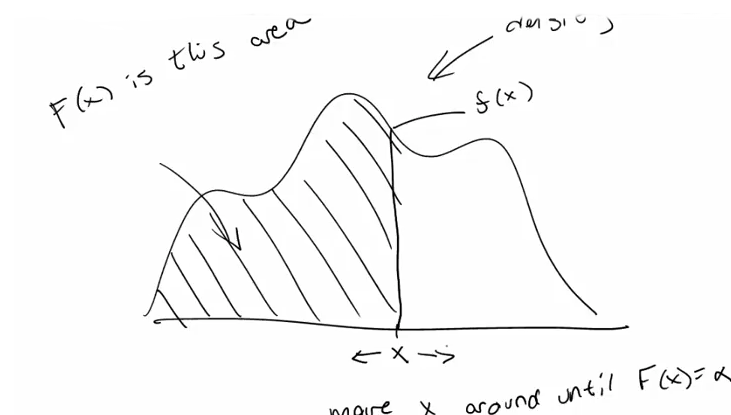 F(x) is this area
f(x)
← x →
move x around until F(x)= α